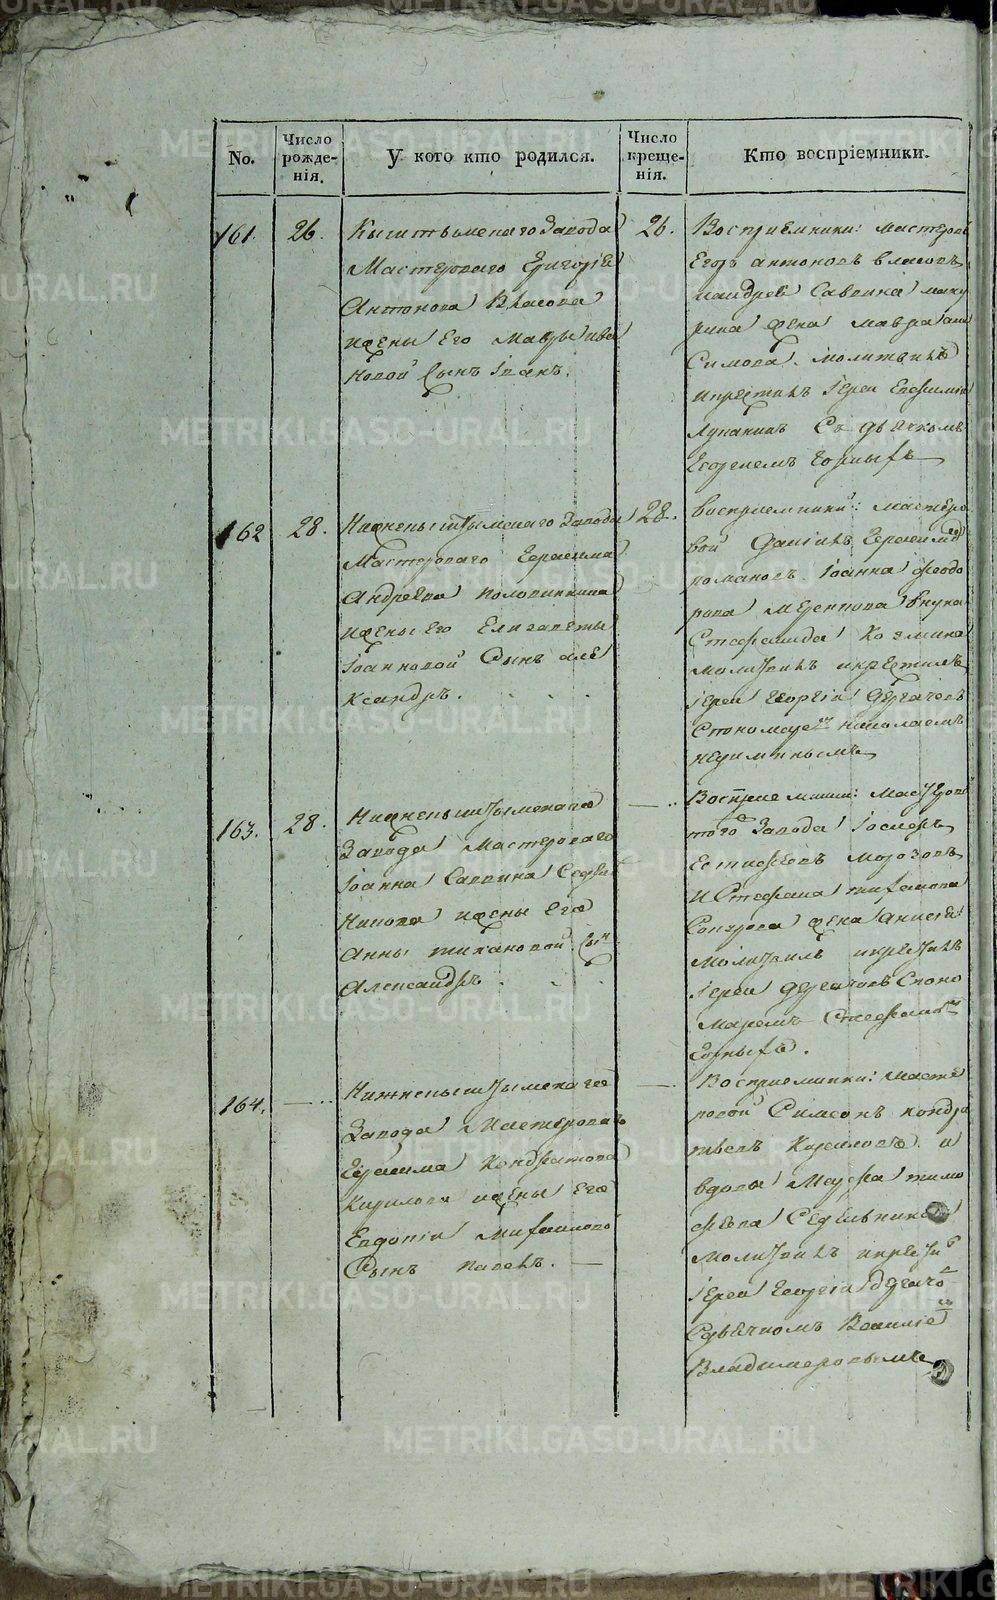 No.
Число рожде-
нія.
У кого кто родился.
Число креще-
нія.
Кто воспріемники.
161.
26.
Кыштымскаго Завода
Мастероваго Григорія
Антонова Власова
ижены Его Мавры Ива
новой сынъ Іванъ.
26.
Восприемники: мастеров
Егоръ антоновъ власовъ
Савина
жена мавра
Симова молитвилъ
икрестилъ Іереи Евфимій
Лупанинъ Съ дьячкомъ
Евгениемъ
162
28.
Нижнекыштымскаго Завода
Мастероваго Герасима
Андреева Половинкина
ижены Его Елизаветы
Іоанновой Сынъ але
ксандръ.
28.
восприемники: мастеро
вой Данилъ Герасимов
романовъ. Іоанна феодо
рова внука
Стефанида Козмина
молитвилъ икрестилъ
іереи георгіи Дергачевъ
Спономарем николаемъ
163.
28.
Нижнекыштымскаго
Завода Мастероваго
Іоанна Саввина
никова ижены Его
Анны тихановой Сын
Александръ
Восприемники: Мастеров
того Завода Іосифъ
Естифеевъ Морозовъ
и Стефана
жена Анисія
Молитвилъ икрестилъ
Іереи дергачевъ Споно
маремъ Стефаном
164.
Нижнекыштымскаго
Завода Мастероваго
Герасима Кондратова
Кирилова ижены Его
Евдокіи Михаиловой
Сынъ Павелъ.
Восприемники: Масте
ровой Симеонъ Кондра
тьевъ Кириловъ и
вдова Марфа тимо
феева Седельникова
Молитвилъ икрести
Іереи Георгіи Дергачо
Сдьячкомъ Василіе
Владимеровымъ
METRIKI.GASO-URAL.RU